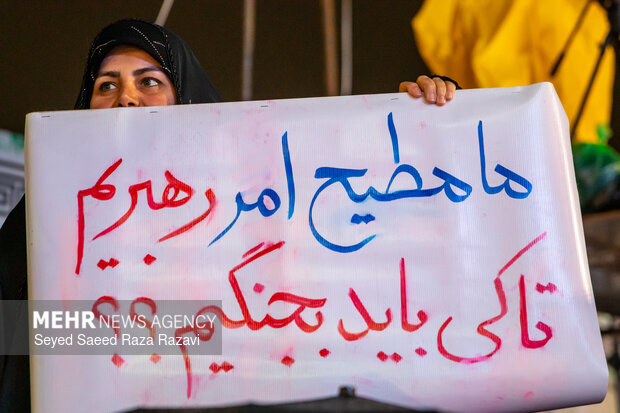 ما مطیع امر رهبریم
تا کی باید بجنگیم؟؟
MEHR NEWS AGENCY
Seyed Saeed Reza Razavi